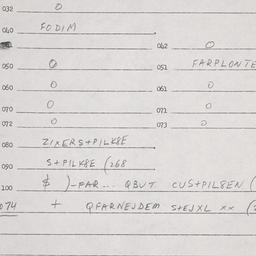 032 O
040 FODIM
042 O
050 O 051 FARPLONTE
060 O 061 O
070 O 071 O
072 O 073 O
080 ZIXERS+PILK8E
090 S+PILK8E (268
100 $ )-FAR... QBUT CUS+PIL8EN (
074 + QFARNEJDEM S+EJXL xx (